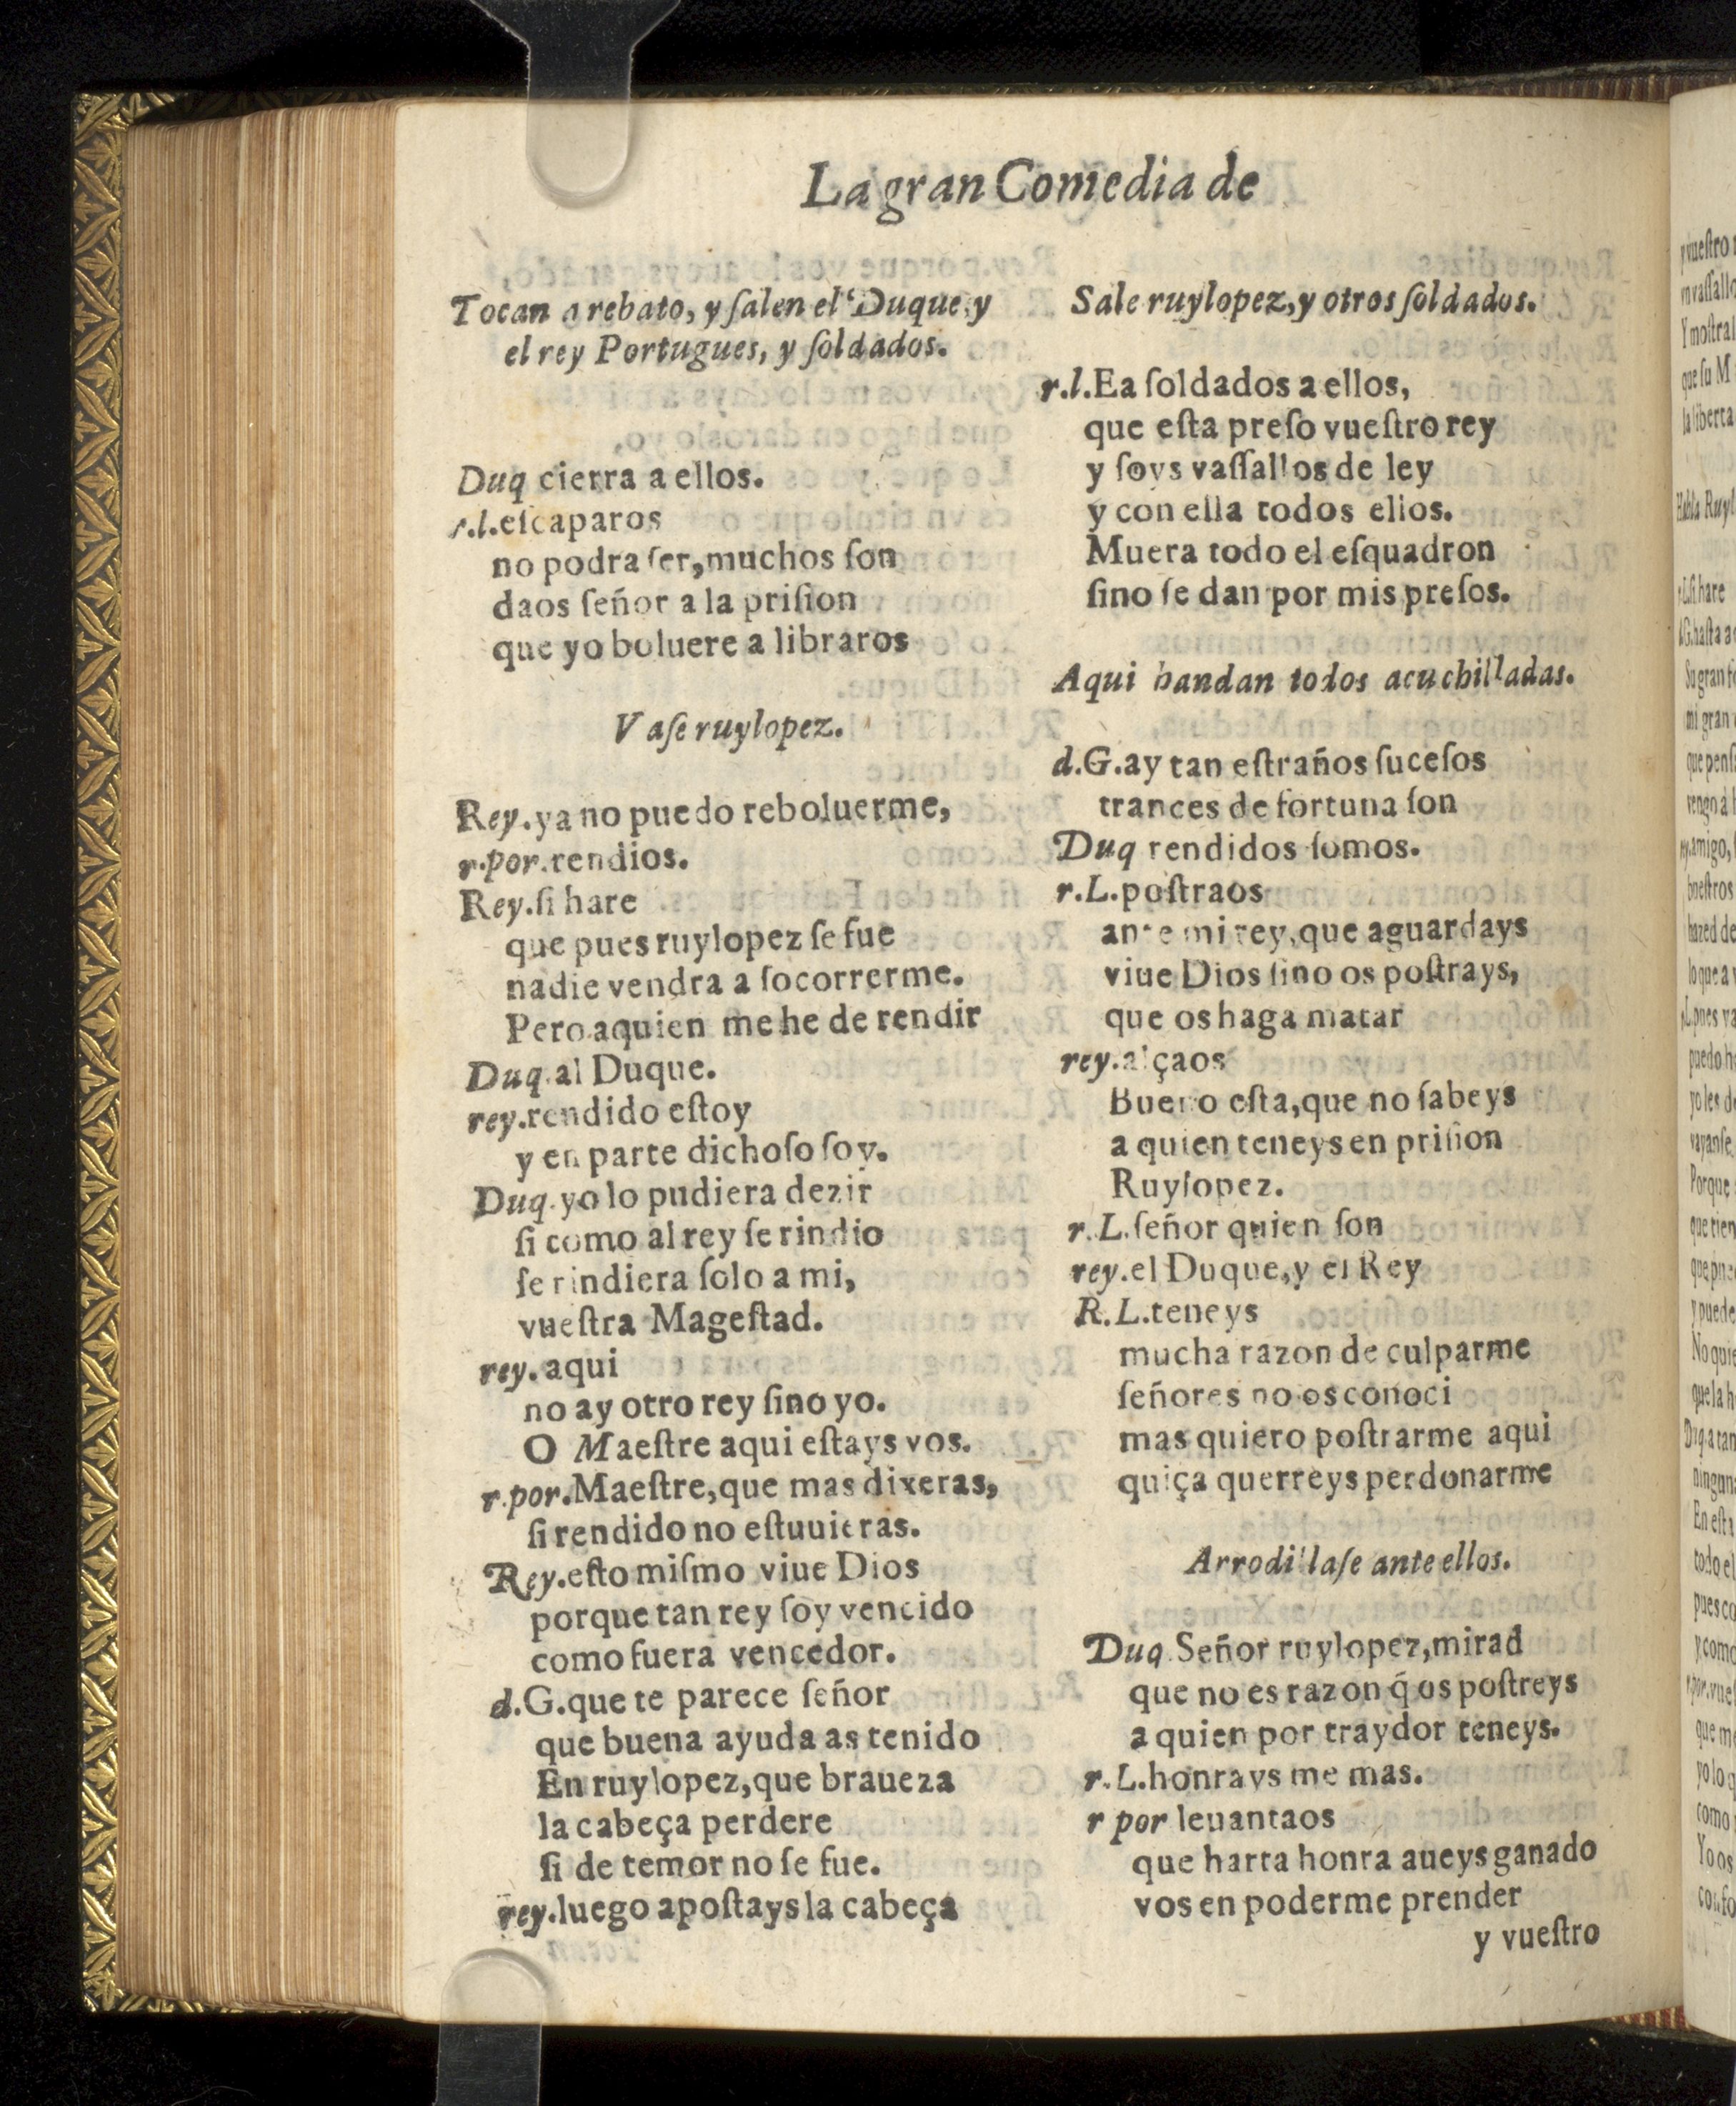 La gran Comedia de
Tocan a rebato, y ſalen el Duque, y
el rey Portugues, y ſoldados.
Duq cierra a ellos.
r.l.eſcaparos
no podra ſer, muchos ſon
daos ſeñor a la priſion
que yo boluere a libraros
Vaſe ruylopez.
Rey.ya no puedo reboluerme,
r.por.rendios.
Rey.ſi hare
que pues ruylopez ſe fue
nadie vendra a ſocorrerme.
Pero aquien me he de rendir
Duq.al Duque.
rey.rendido eſtoy
y en parte dichoſo ſoy.
Duq.yo lo pudiera dezir
ſi como al rey ſe rindio
ſe rindiera ſolo a mi,
vueſtra Mageſtad.
rey.aqui
no ay otro rey ſino yo.
O Maeſtre aqui eſtays vos.
r.por.Maeſtre,que mas dixeras,
ſi rendido no eſtuuieras.
Rey.eſto miſmo viue Dios
porque tan rey ſoy vencido
como fuera vencedor.
d.G.que te parece ſeñor
que buena ayuda as tenido
En ruylopez,que braueza
la cabeça perdere
ſi de temor no ſe fue.
rey.luego apoſtays la cabeça
Sale ruylopez,y otros ſoldados.
r.l.Ea ſoldados a ellos,
que eſta preſo vueſtro rey
y ſoys vaſſallos de ley
y con ella todos ellos.
Muera todo el eſquadron
ſino ſe dan por mis preſos.
Aqui handan todos acuchilladas.
d.G.ay tan eſtraños ſuceſos
trances de fortuna ſon
Duq rendidos ſomos.
r.L.poſtraos
ante mi rey,que aguardays
viue Dios ſino os poſtrays,
que os haga matar
rey.alçaos
Bueno eſta,que no ſabeys
a quien teneys en priſion
Ruylopez.
r.L.ſeñor quien ſon
rey.el Duque,y el Rey
R.L.teneys
mucha razon de culparme
ſeñores no os conoci
mas quiero poſtrarme aqui
quiça querreys perdonarme
Arrodillaſe ante ellos.
Duq.Señor ruylopez,mirad
que no es razon q̃ os poſtreys
a quien por traydor teneys.
r.L.honrays me mas.
r por leuantaos
que harta honra aueys ganado
vos en poderme prender
y vueſtro